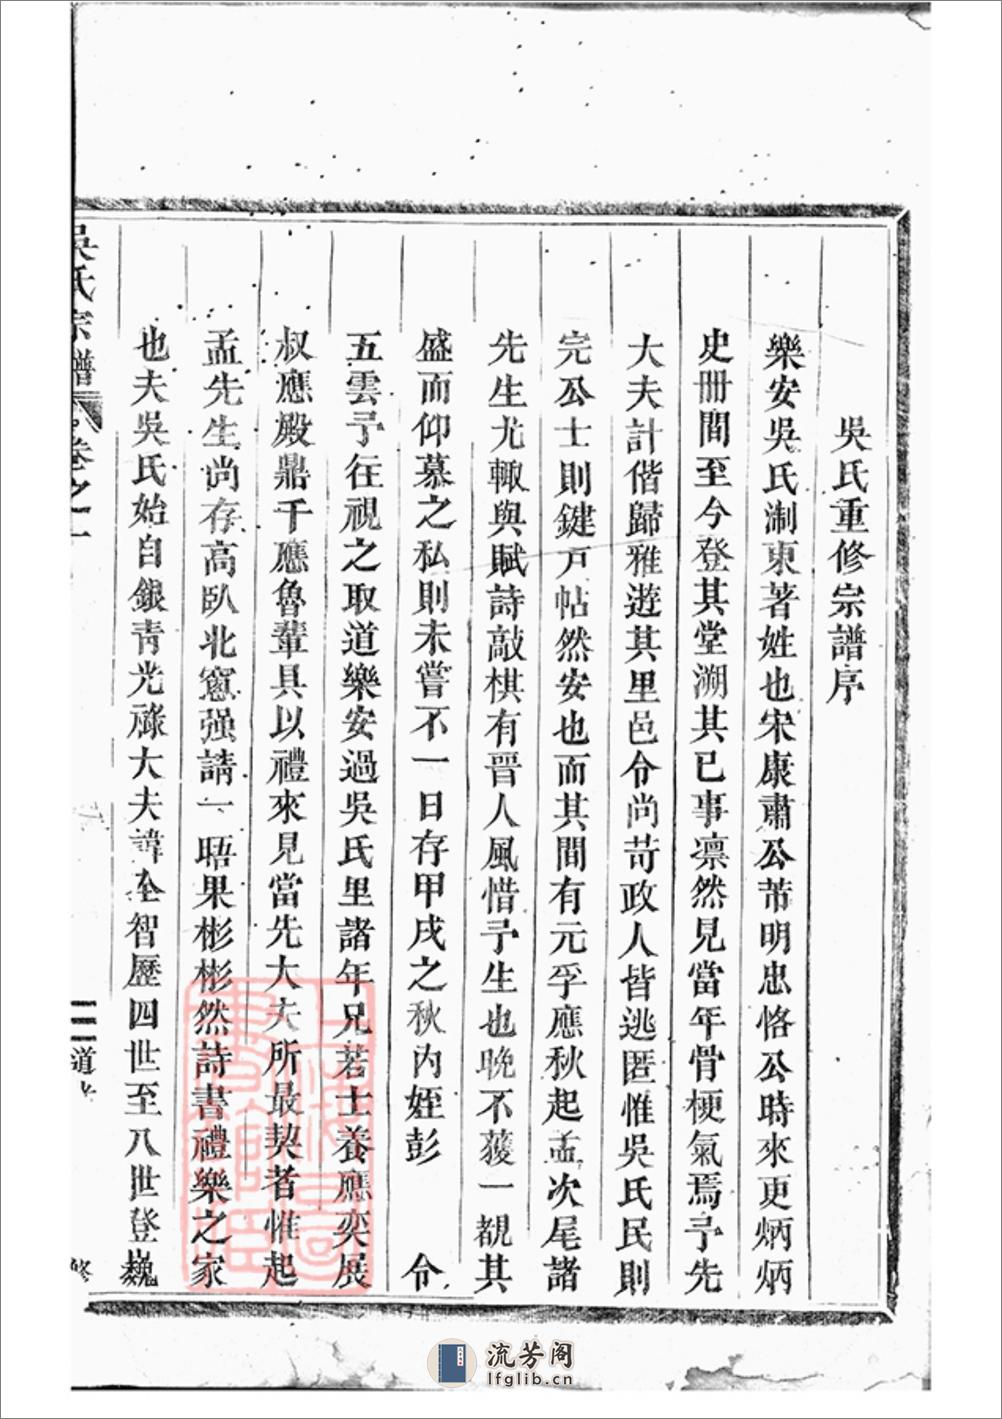 吳氏重修宗譜序
樂安吳氏淛東著姓也宋康肅公芾明忠恪公時來更炳炳
史冊間至今登其堂溯其已事凛然見當年骨梗氣焉予先
大夫計偕歸雅遊其里邑令尚苛政人皆逃匿惟吳氏民則
完公士則鍵戸帖然安也而其間有元孚應秋起孟次尾諸
先生尤輙與賦詩敲棋有晋人風惜予生也晚不獲一覩其
盛而仰慕之私則未嘗不一日存甲戌之秋內姪彭　令
五雲予往視之取道樂安過吳氏里諸年兄若士養應奕展
叔應殿鼎千應魯輩具以禮來見當先大夫所最契者惟起
孟先生尚存高臥北窻强請一晤果彬彬然詩書禮樂之家
也夫吳氏始自銀青光祿大夫諱全智歷四世至八世登巍
吳氏宗譜 卷之一
三 道
流芳阁
lfglib.cn